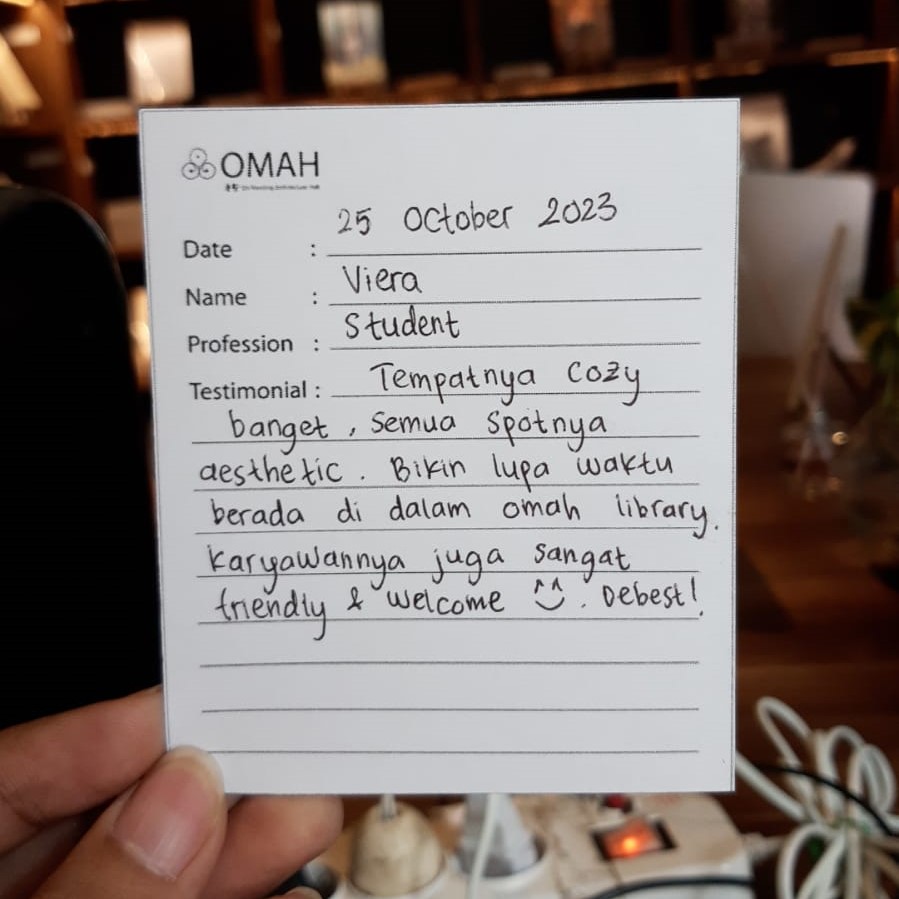 OMAH
25 October 2023
Date :
Viera
Name :
Student
Profession :
Testimonial : Tempatnya cozy
banget , semua spotnya
aesthetic . Bikin lupa waktu
berada di dalam omah library.
karyawannya juga sangat
friendly & welcome ^^ . Debest!